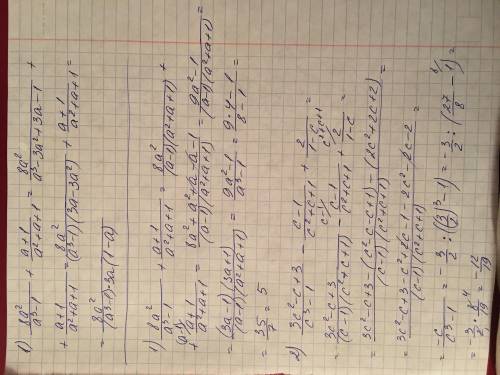 1) 8a²/(a³-1) + (a+1)/(a²+a+1) = 8a²/(a³-3a²+3a-1) +
+ (a+1)/(a²+a+1) = 8a²/((a³-1)(3a-3a²)) + (a+1)/(a²+a+1) =
= 8a²/((a³-1)·3a(1-a))
1) 8a²/(a³-1) + (a+1)/(a²+a+1) = 8a²/((a-1)(a²+a+1)) +
+ (a-1)(a+1)/(a²+a+1) = (8a²+a²+a-a-1)/((a-1)(a²+a+1)) = (9a²-1)/((a-1)(a²+a+1)) =
= ((3a-1)(3a+1))/((a-1)(a²+a+1)) = (9a²-1)/(a³-1) = (9·4-1)/(8-1) =
= 35/7 = 5
2) (3c²-c+3)/(c³-1) - (c-1)/(c²+c+1) + 2/(1-c) =
= (3c²-c+3)/((c-1)(c²+c+1)) - (c-1)(c-1)/(c²+c+1) + (c²+c+1) 2/(1-c) =
= (3c²-c+3-(c²-c-c+1)-(2c²+2c+2))/((c-1)(c²+c+1)) =
= (3c²-c+3-c²+2c-1-2c²-2c-2)/((c-1)(c²+c+1)) =
= -c/(c³-1) = -3/2 : ((3/2)³-1) = -3/2 : (27/8 - 1) =
= -3/2 · 8/19 = -12/19